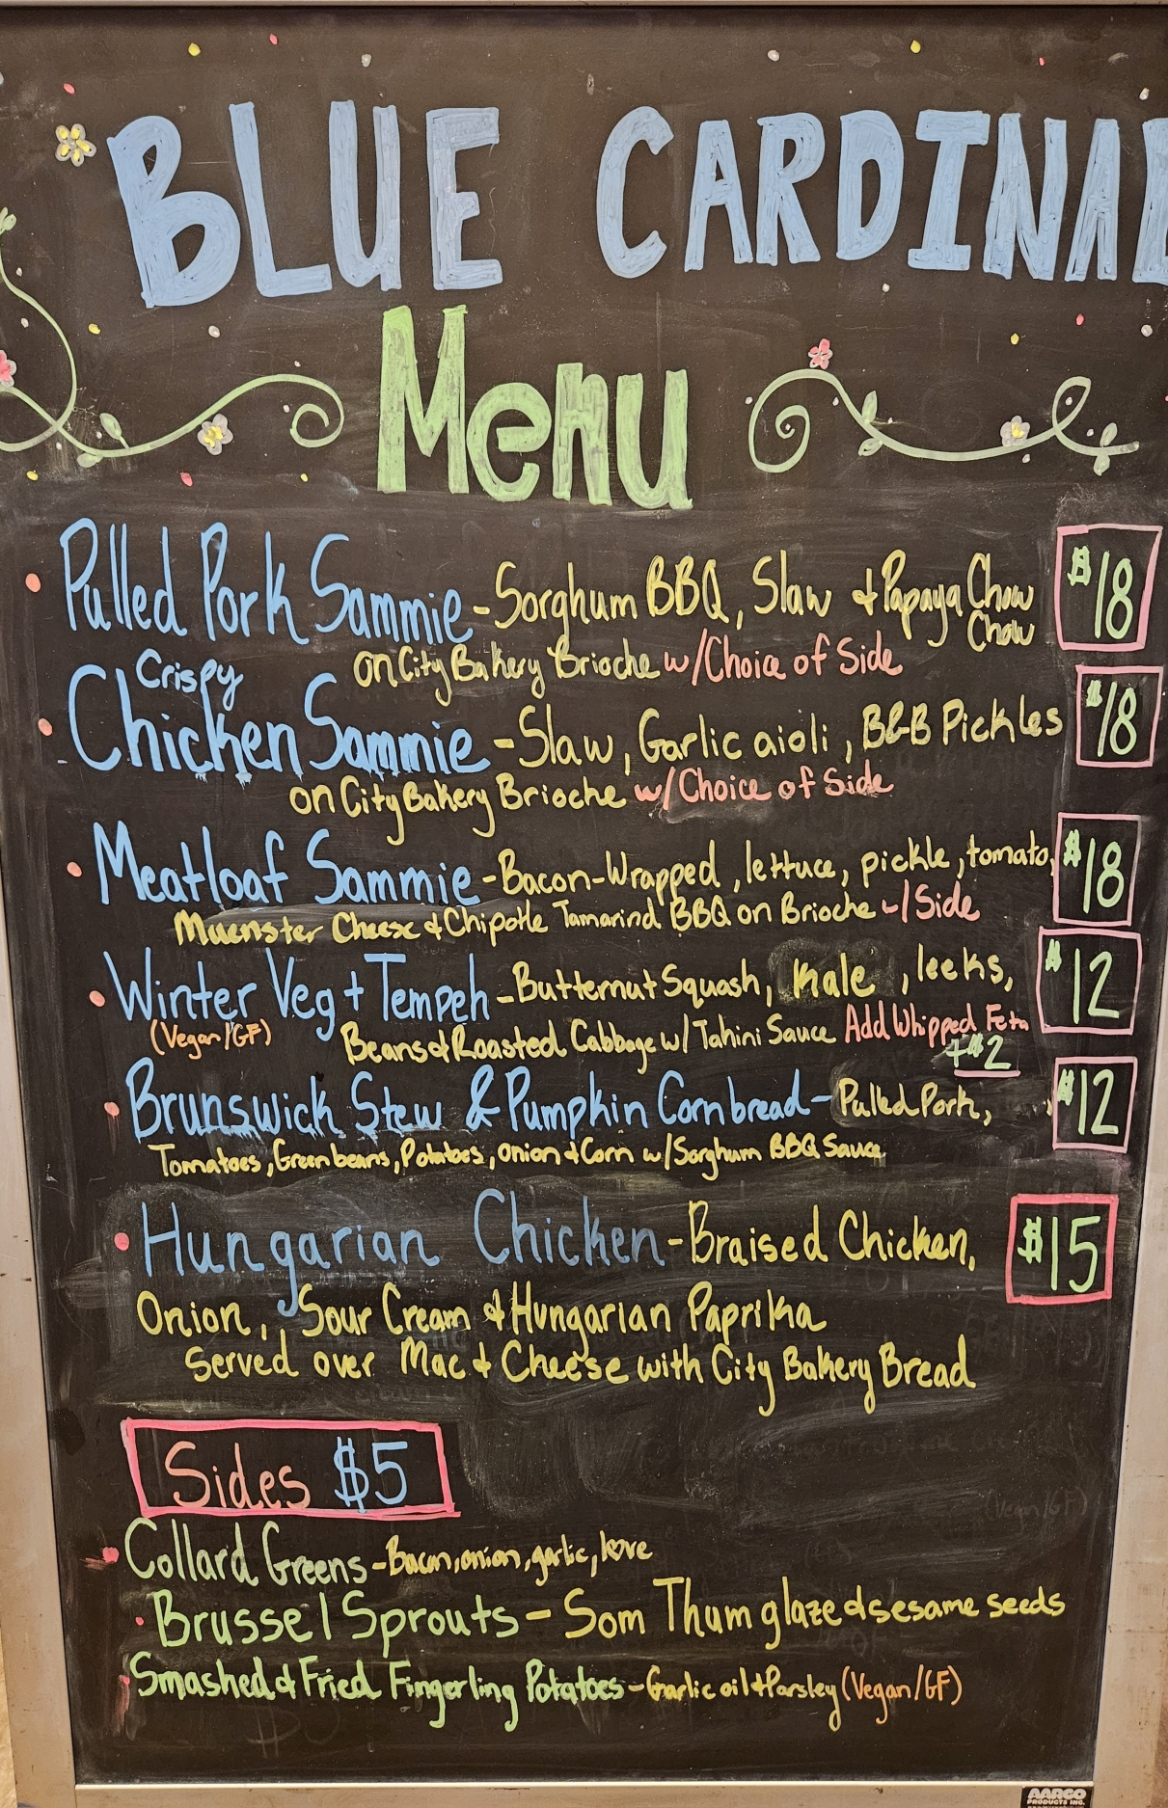 BLUE CARDINAL
Menu
Pulled Pork Sammie - Sorghum BBQ, Slaw & Papaya Chow Chow $18
on City Bakery Brioche w/Choice of Side
Crispy
Chicken Sammie - Slaw, Garlic aioli, B&B Pickles $18
on City Bakery Brioche w/Choice of Side
Meatloaf Sammie - Bacon-Wrapped, lettuce, pickle, tomato, $18
Muenster Cheese & Chipotle Tamarind BBQ on Brioche w/Side
Winter Veg + Tempeh - Butternut Squash, Kale, leeks, $12
(Vegan/GF) Beans & Roasted Cabbage w/ Tahini Sauce Add Whipped Feta
+$2
Brunswick Stew & Pumpkin Cornbread - Pulled Pork, $12
Tomatoes, Green beans, Potatoes, onion & Corn w/Sorghum BBQ Sauce
Hungarian Chicken - Braised Chicken, $15
Onion, Sour Cream & Hungarian Paprika
Served over Mac & Cheese with City Bakery Bread
Sides $5
(Vegan/GF)
Collard Greens - Bacon, onion, garlic, love
Brussel Sprouts - Som Thum glaze & sesame seeds
Smashed & Fried Fingerling Potatoes - Garlic oil & Parsley (Vegan/GF)
AARCO
PRODUCTS INC.